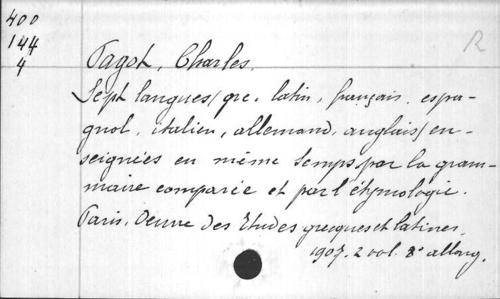 400
144
4
R
Pagot, Charles.
Sept langues/grec. latin, français. espa-
gnol, italien, allemand, anglais/en-
seignées en même temps par la gram-
maire comparée et par l'éthymologie.
Paris. Oeuvre des Etudes grecques et latines.
1907. 2 vol. 8° allong.